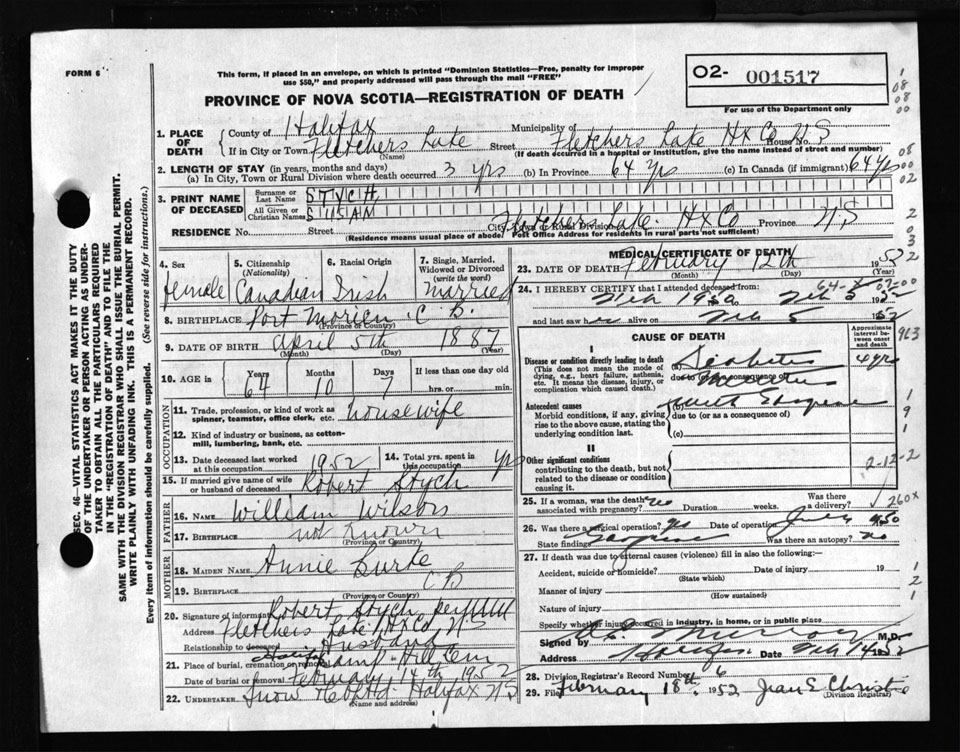 FORM 6
This form, if placed in an envelope, on which is printed "Dominion Statistics—Free, penalty for improper
use $50," and properly addressed will pass through the mail "FREE"
O2- 001517
For use of the Department only
PROVINCE OF NOVA SCOTIA—REGISTRATION OF DEATH
1. PLACE OF DEATH
County of Halifax Municipality of
If in City or Town Fletchers Lake Street Fletchers Lake Hx Co House No. N.S
(Name) (If death occurred in a hospital or institution, give the name instead of street and number)
2. LENGTH OF STAY (in years, months and days)
(a) In City, Town or Rural Division where death occurred 3 yrs (b) In Province 64 yrs (c) In Canada (if immigrant) 64 yrs
3. PRINT NAME OF DECEASED
Surname or Last Name STYCH
All Given or Christian Names SUSAN
RESIDENCE No. Street City, Town or Rural Division Fletchers Lake Hx Co Province N.S
(Residence means usual place of abode. Post Office Address for residents in rural parts not sufficient)
4. Sex female
5. Citizenship (Nationality) Canadian
6. Racial Origin Irish
7. Single, Married, Widowed or Divorced (write the word) Married
8. BIRTHPLACE Port Morien C. B.
(Province or Country)
9. DATE OF BIRTH April 5th 1887
(Month) (Day) (Year)
10. AGE in Years 64 Months 10 Days 7 If less than one day old
hrs. or min.
OCCUPATION
11. Trade, profession, or kind of work as spinner, teamster, office clerk, etc. housewife
12. Kind of industry or business, as cotton-mill, lumbering, bank, etc.
13. Date deceased last worked at this occupation 1952
14. Total yrs. spent in this occupation yrs
15. If married give name of wife or husband of deceased Robert Stych
FATHER
16. NAME William Wilson
17. BIRTHPLACE not known
(Province or Country)
MOTHER
18. MAIDEN NAME Annie Burke
19. BIRTHPLACE C B
(Province or Country)
20. Signature of informant Robert Stych
Address Fletchers Lake Hx Co N S
Relationship to deceased Husband
21. Place of burial, cremation or removal Camp Hill Cem
Date of burial or removal February 14th 1952
22. UNDERTAKER Snow & Co Ltd. Halifax N S
(Name and address)
MEDICAL CERTIFICATE OF DEATH
23. DATE OF DEATH February 12th 1952
(Month) (Day) (Year)
24. I HEREBY CERTIFY that I attended deceased from
Feb 1950 to Feb 5 1952
and last saw h alive on Feb 5 1952
CAUSE OF DEATH
Approximate interval between onset and death
I
Disease or condition directly leading to death
(This does not mean the mode of dying, e.g., heart failure, asthenia, etc. It means the disease, injury, or complication which caused death.)
(a) Diabetes 4 yrs
due to (or as a consequence of)
Mellitus
Antecedent causes
Morbid conditions, if any, giving rise to the above cause, stating the underlying condition last.
(b) with Gangrene
due to (or as a consequence of)
(c)
II
Other significant conditions
contributing to the death, but not related to the disease or condition causing it.
2-12-2
25. If a woman, was the death associated with pregnancy? no Duration weeks. Was there a delivery?
260X
26. Was there a surgical operation? yes Date of operation July 1950
State findings Gangrene Was there an autopsy? no
27. If death was due to external causes (violence) fill in also the following:—
Accident, suicide or homicide? Date of injury 19
(State which)
Manner of injury
(How sustained)
Nature of injury
Specify whether injury occurred in industry, in home, or in public place
Signed by Murray M.D.
Address Halifax Date Feb 14 1952
28. Division Registrar's Record Number 6
29. Filed February 18th 1952 Jean E Christie
(Division Registrar)
SEC. 46—VITAL STATISTICS ACT MAKES IT THE DUTY
OF THE UNDERTAKER OR PERSON ACTING AS UNDER-
TAKER TO OBTAIN ALL THE PARTICULARS REQUIRED
IN THE "REGISTRATION OF DEATH" AND TO FILE THE
SAME WITH THE DIVISION REGISTRAR WHO SHALL ISSUE THE BURIAL PERMIT.
WRITE PLAINLY WITH UNFADING INK. THIS IS A PERMANENT RECORD.
Every item of information should be carefully supplied. (See reverse side for instructions.)